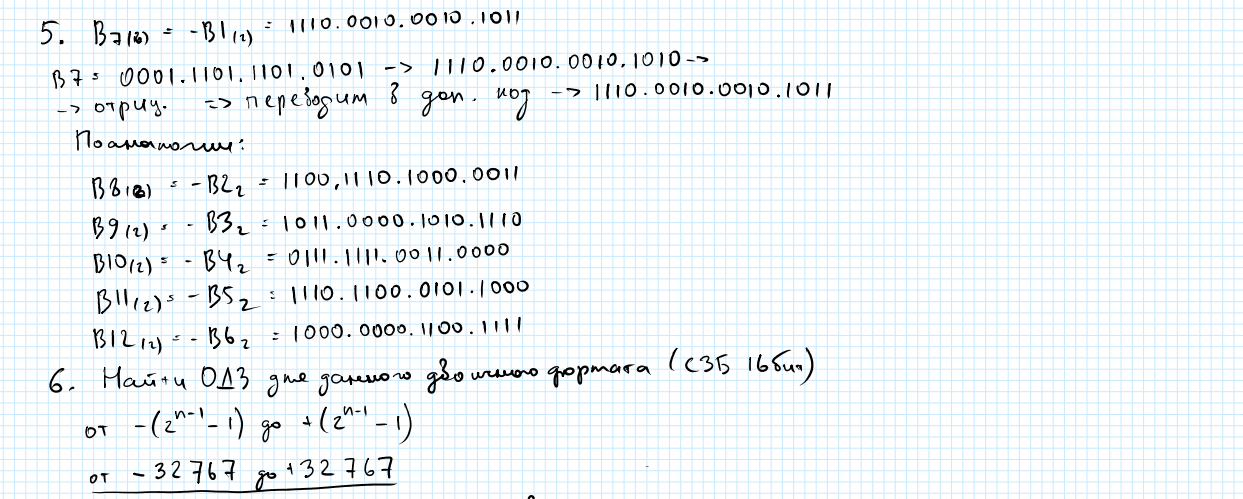 5. B7(2) = -B1(2) = 1110.0010.0010.1011
B7 = 0001.1101.1101.0101 -> 1110.0010.0010.1010 ->
-> отриц. => переводим в доп. код -> 1110.0010.0010.1011
По аналогии:
B8(2) = -B2₂ = 1100,1110.1000.0011
B9(2) = -B3₂ = 1011.0000.1010.1110
B10(2) = -B4₂ = 0111.1111.0011.0000
B11(2) = -B5₂ = 1110.1100.0101.1000
B12(2) = -B6₂ = 1000.0000.1100.1111
6. Найти ОДЗ для данного двоичного формата (СЗБ 16бит)
от -(2ⁿ⁻¹-1) до +(2ⁿ⁻¹-1)
от -32767 до +32767